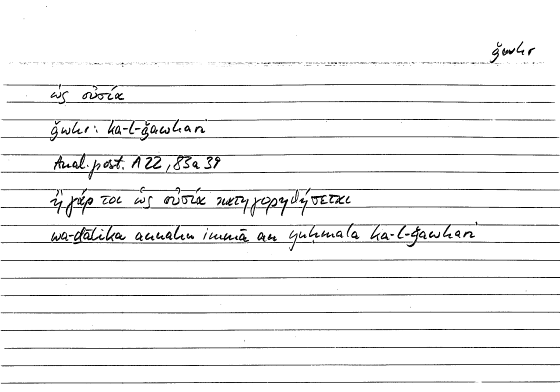 ǧwhr
ὡς οὐσία
ǧwhr: ka-l-ǧawhari
Anal. post. A 22, 83a 39
ἢ γάρ τοι ὡς οὐσία κατηγορηθήσεται
wa-ḏālika annahu immā an yuḥmala ka-l-ǧawhari